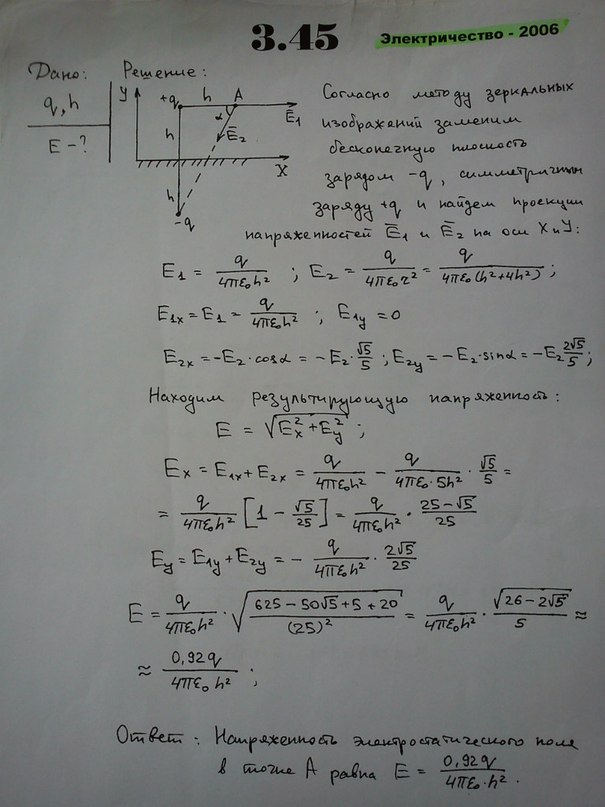 3.45
Электричество - 2006
Дано:
q, h
E - ?
Решение:
y +q h A Ē₁
h α Ē₂
X
h
-q
Согласно методу зеркальных
изображений заменим
бесконечную плоскость
зарядом -q, симметричным
заряду +q и найдем проекции
напряженностей Ē₁ и Ē₂ на оси X и У:
E₁ = q/(4πε₀h²) ; E₂ = q/(4πε₀r²) = q/(4πε₀(h²+4h²)) ;
E₁ₓ = E₁ = q/(4πε₀h²) ; E₁y = 0
E₂ₓ = -E₂·cosα = -E₂·√5/5 ; E₂y = -E₂·sinα = -E₂ 2√5/5 ;
Находим результирующую напряженность:
E = √(Eₓ² + Ey²) ;
Eₓ = E₁ₓ + E₂ₓ = q/(4πε₀h²) - q/(4πε₀·5h²) · √5/5 =
= q/(4πε₀h²) [1 - √5/25] = q/(4πε₀h²) · (25-√5)/25
Ey = E₁y + E₂y = - q/(4πε₀h²) · 2√5/25
E = q/(4πε₀h²) · √((625 - 50√5 + 5 + 20)/(25)²) = q/(4πε₀h²) · √(26-2√5)/5 ≈
≈ 0,92q/(4πε₀h²) ;
Ответ: Напряженность электростатического поля
в точке А равна E = 0,92q/(4πε₀·h²).